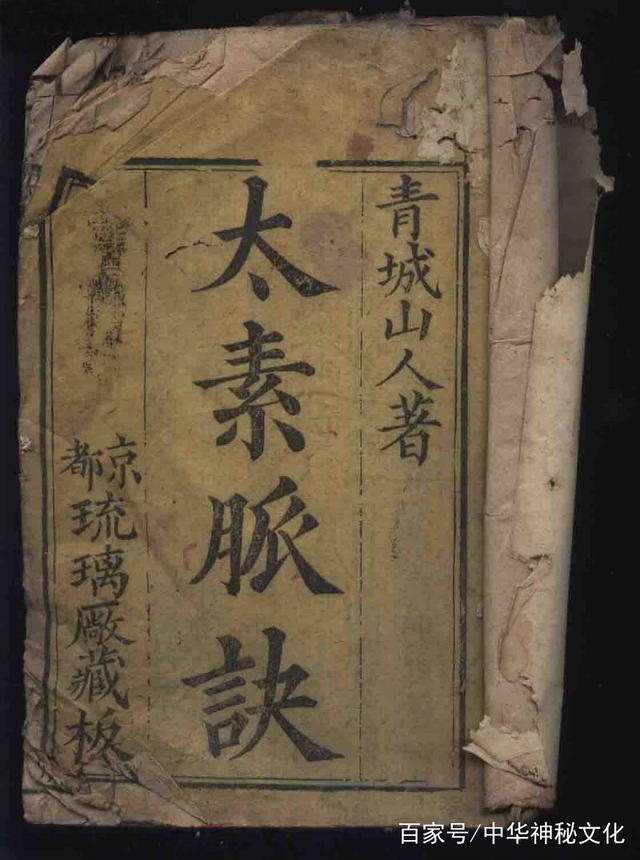 青城山人著
太素脈訣
京都琉璃厰藏板
百家号/中华神秘文化